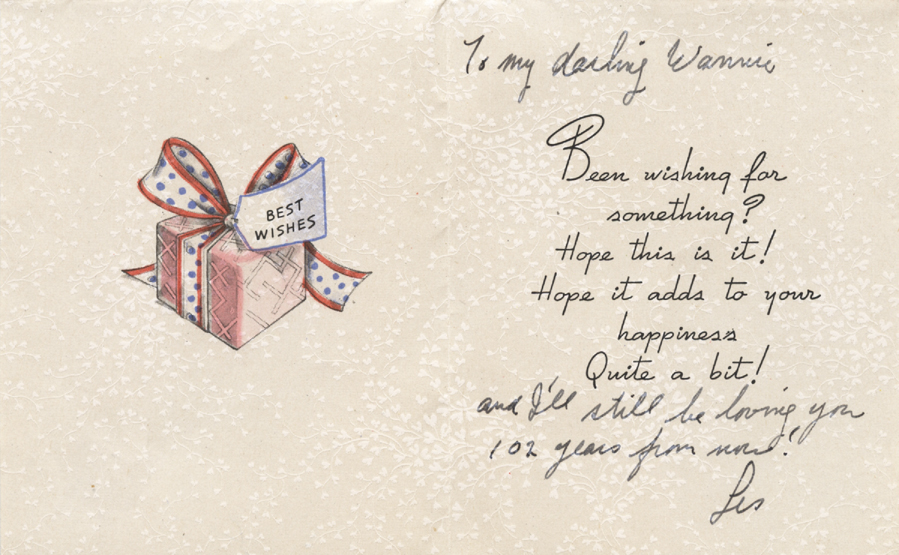 BEST
WISHES
To my darling Wannie
Been wishing for
something?
Hope this is it!
Hope it adds to your
happiness
Quite a bit!
and I'll still be loving you
102 years from now!
Les